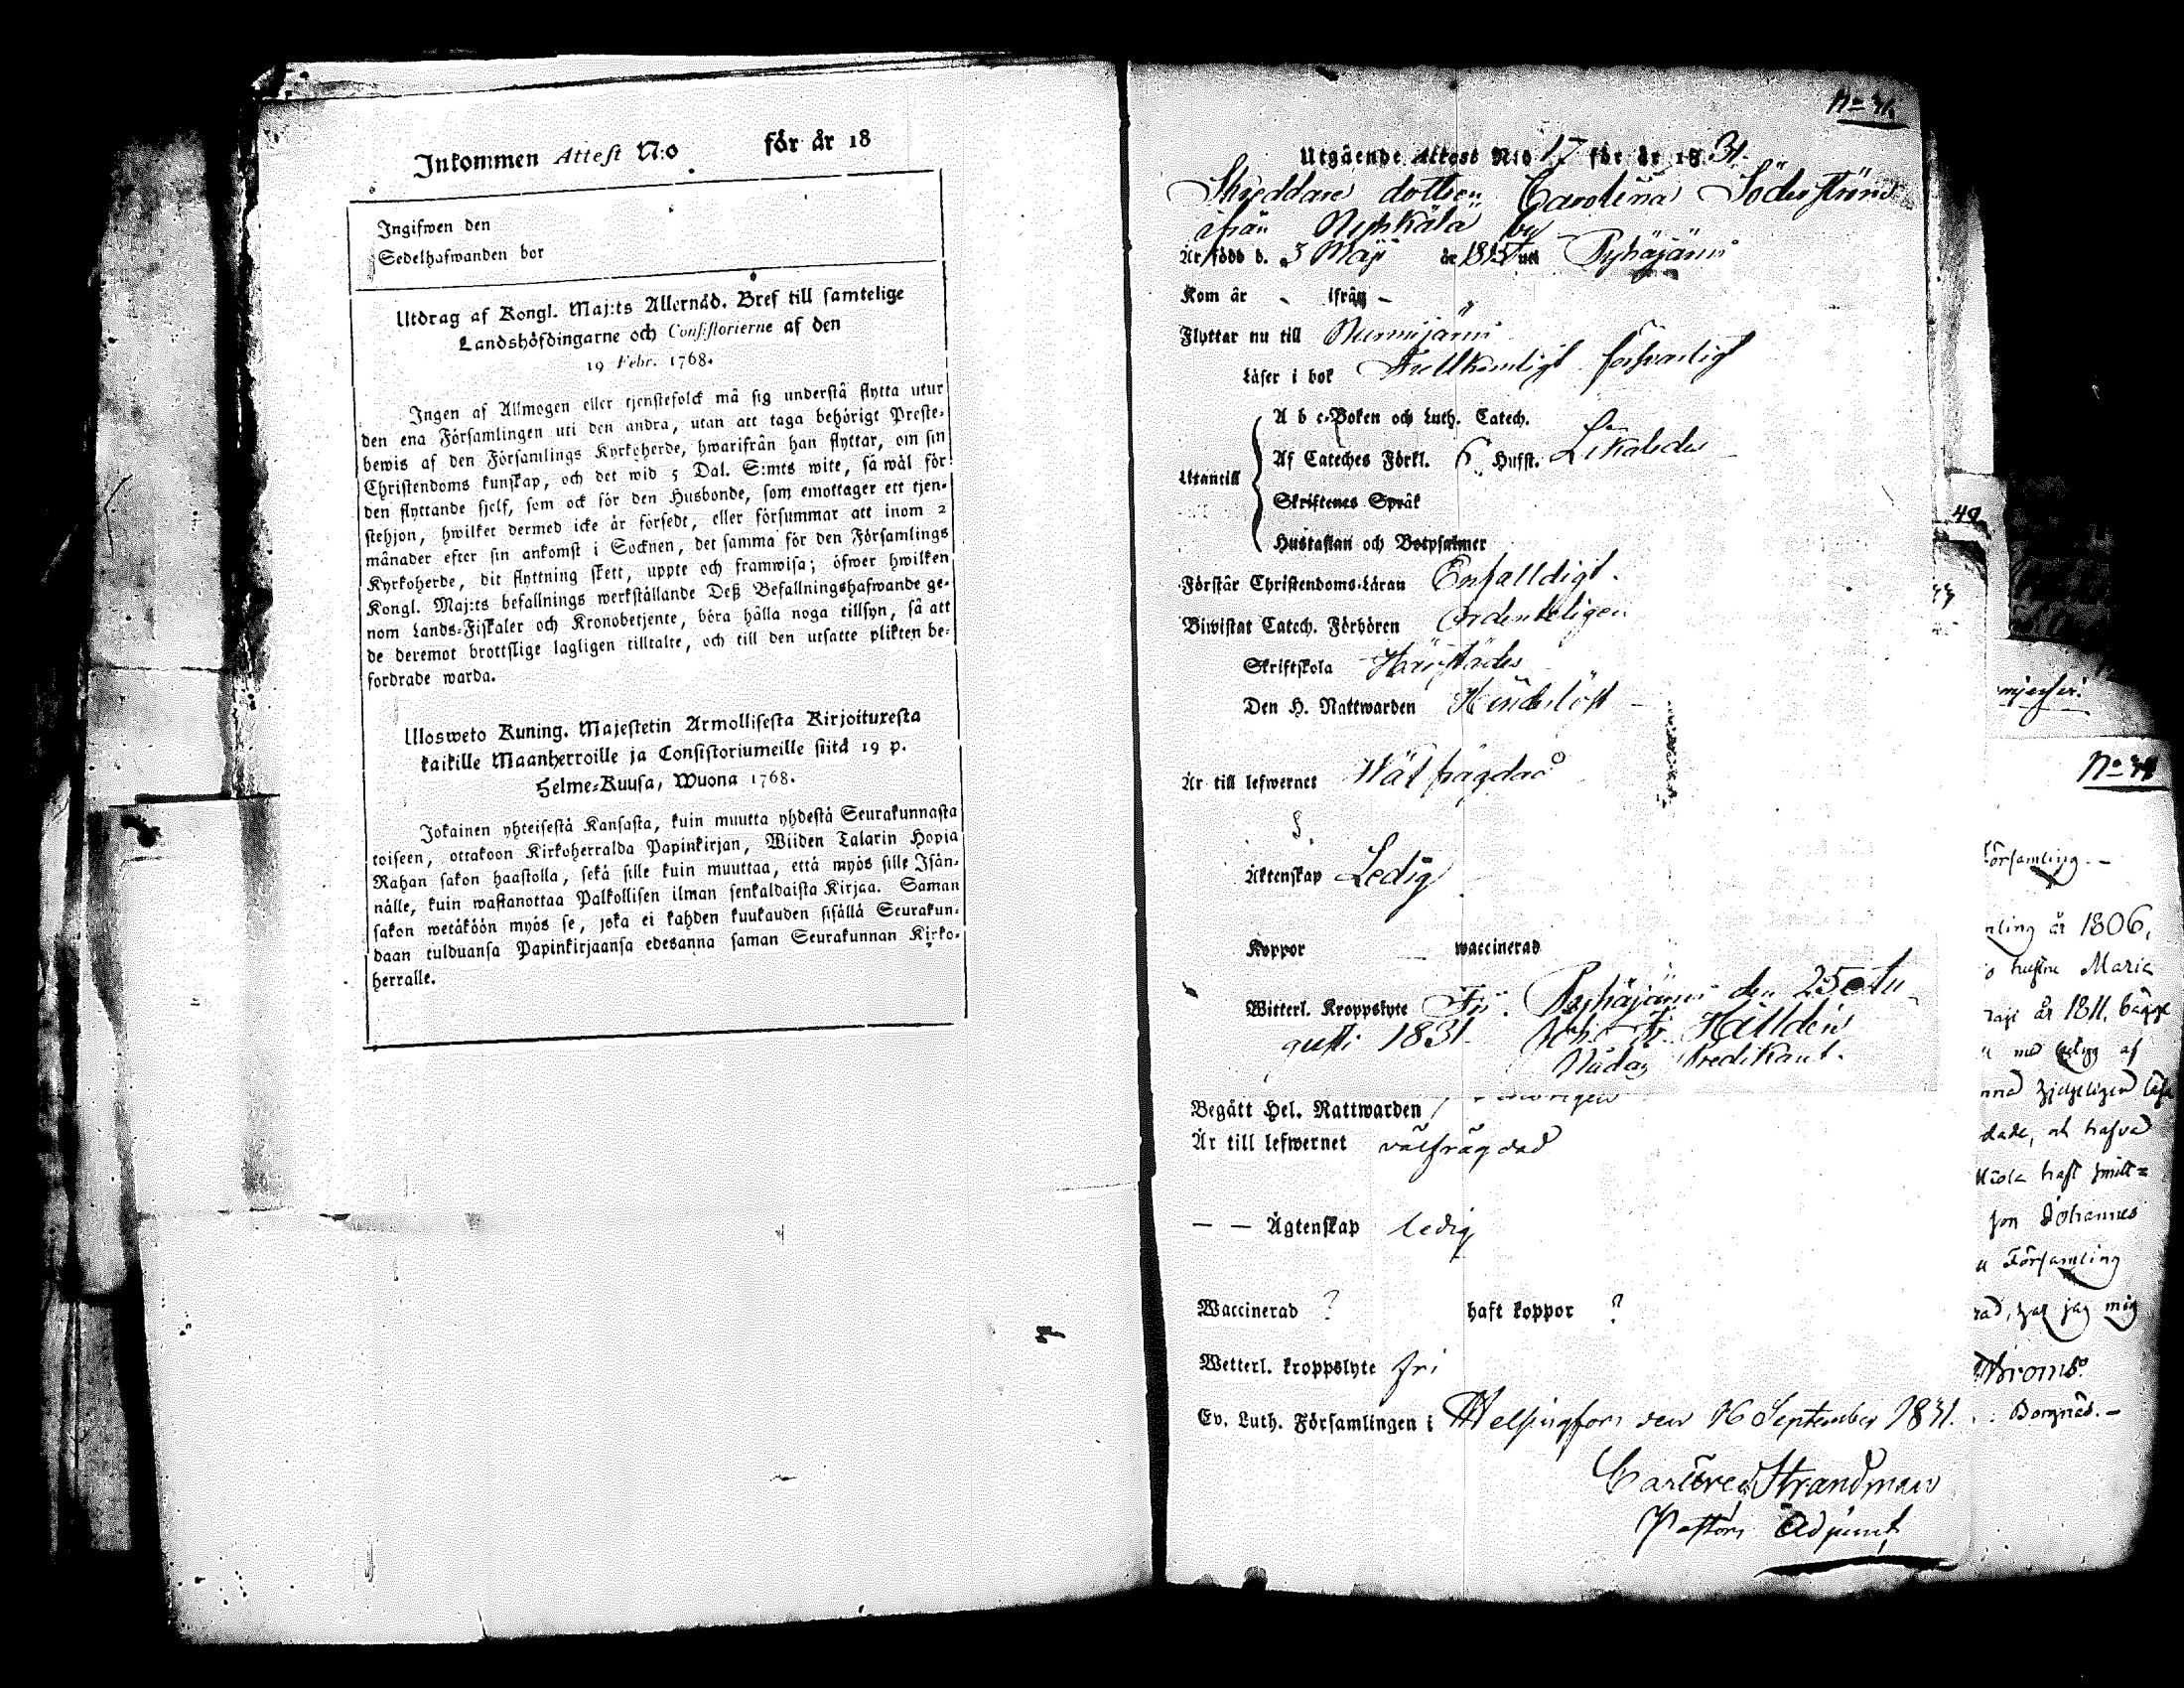 Inkommen Attest N:o för år 18
Ingifwen den
Sedelhafwanden bor
Utdrag af Kongl. Maj:ts Allernåd. Bref till samtelige
Landshöfdingarne och Consistorierne af den
19 Febr. 1768.
Ingen af Allmogen eller tjenstefolck må sig understå flytta utur
den ena Församlingen uti den andra, utan att taga behörigt Preste-
bewis af den Församlings Kyrkoherde, hwarifrån han flyttar, om sin
Christendoms kunskap, och det wid 5 Dal. S:mts wite, så wäl för
den flyttande sjelf, som ock för den Husbonde, som emottager ett tjen-
stehjon, hwilket dermed icke är försedt, eller försummar att inom 2
månader efter sin ankomst i Socknen, det samma för den Församlings
Kyrkoherde, dit flyttning skett, uppte och framwisa; öfwer hwilken
Kongl. Maj:ts befallnings werkställande Deß Befallningshafwande ge-
nom Lands-Fiskaler och Kronobetjente, böra hålla noga tillsyn, så att
de deremot brottslige lagligen tilltalte, och till den utsatte plikten be-
fordrade warda.
Ulosweto Kuning. Majestetin Armollisesta Kirjoituxesta
kaikille Maanherroille ja Consistoriumeille siitä 19 p.
Helme-Kuusa, Wuona 1768.
Jokainen yhteisestä Kansasta, kuin muutta yhdestä Seurakunnasta
toiseen, ottakoon Kirkoherralda Papinkirjan, Wiiden Talarin Hopia
Rahan sakon haastolla, sekä sille kuin muuttaa, että myös sille Isän-
nälle, kuin wastanottaa Palkollisen ilman senkaldaista Kirjaa. Saman
sakon wetäköön myös se, joka ei kahden kuukauden sisällä Seurakun-
daan tulduansa Papinkirjaansa edesanna saman Seurakunnan Kirko-
herralle.
Utgående Attest N:o 17 för år 1831.
Skreddare dottren Carolina Söderström
ifrån by
Är född d. 3 Maji år 1815 uti Pyhäjärvi
Kom år - ifrån -
Flyttar nu till Nurmijärvi
Läser i bok försvarligt
A b c-Boken och Luth. Catech.
Af Cateches Förkl. 6 Hufst. Likaledes
Utantill
Skriftenes Språk
Hustaflan och Botpsalmer
Förstår Christendoms-Läran Enfalldigt.
Biwistat Catech. Förhören Ordenteligen
Skriftskola Härstädes
Den H. Nattwarden Hinderlöst
Är till lefwernet Wälfrägdad
Äktenskap Ledig
Koppor waccinerad
Witterl. Kroppslyte Fri. Pyhäjärvi den 25 Au-
gusti 1831. Joh. Fr. Hällden
Nådå. Predikant.
Begått Hel. Nattwarden
Är till lefwernet välfrägdad
— — Ägtenskap ledig
Waccinerad ? haft koppor ?
Wetterl. kroppslyte fri
Ev. Luth. Församlingen i Helsingfors den 16 September 1831.
Strandman
Pastors Adjunct
Församling. —
år 1806,
hustru Maria
år 1811, bägge
af
dade, och hafva
haft
son Johannes
Församling
jag mig